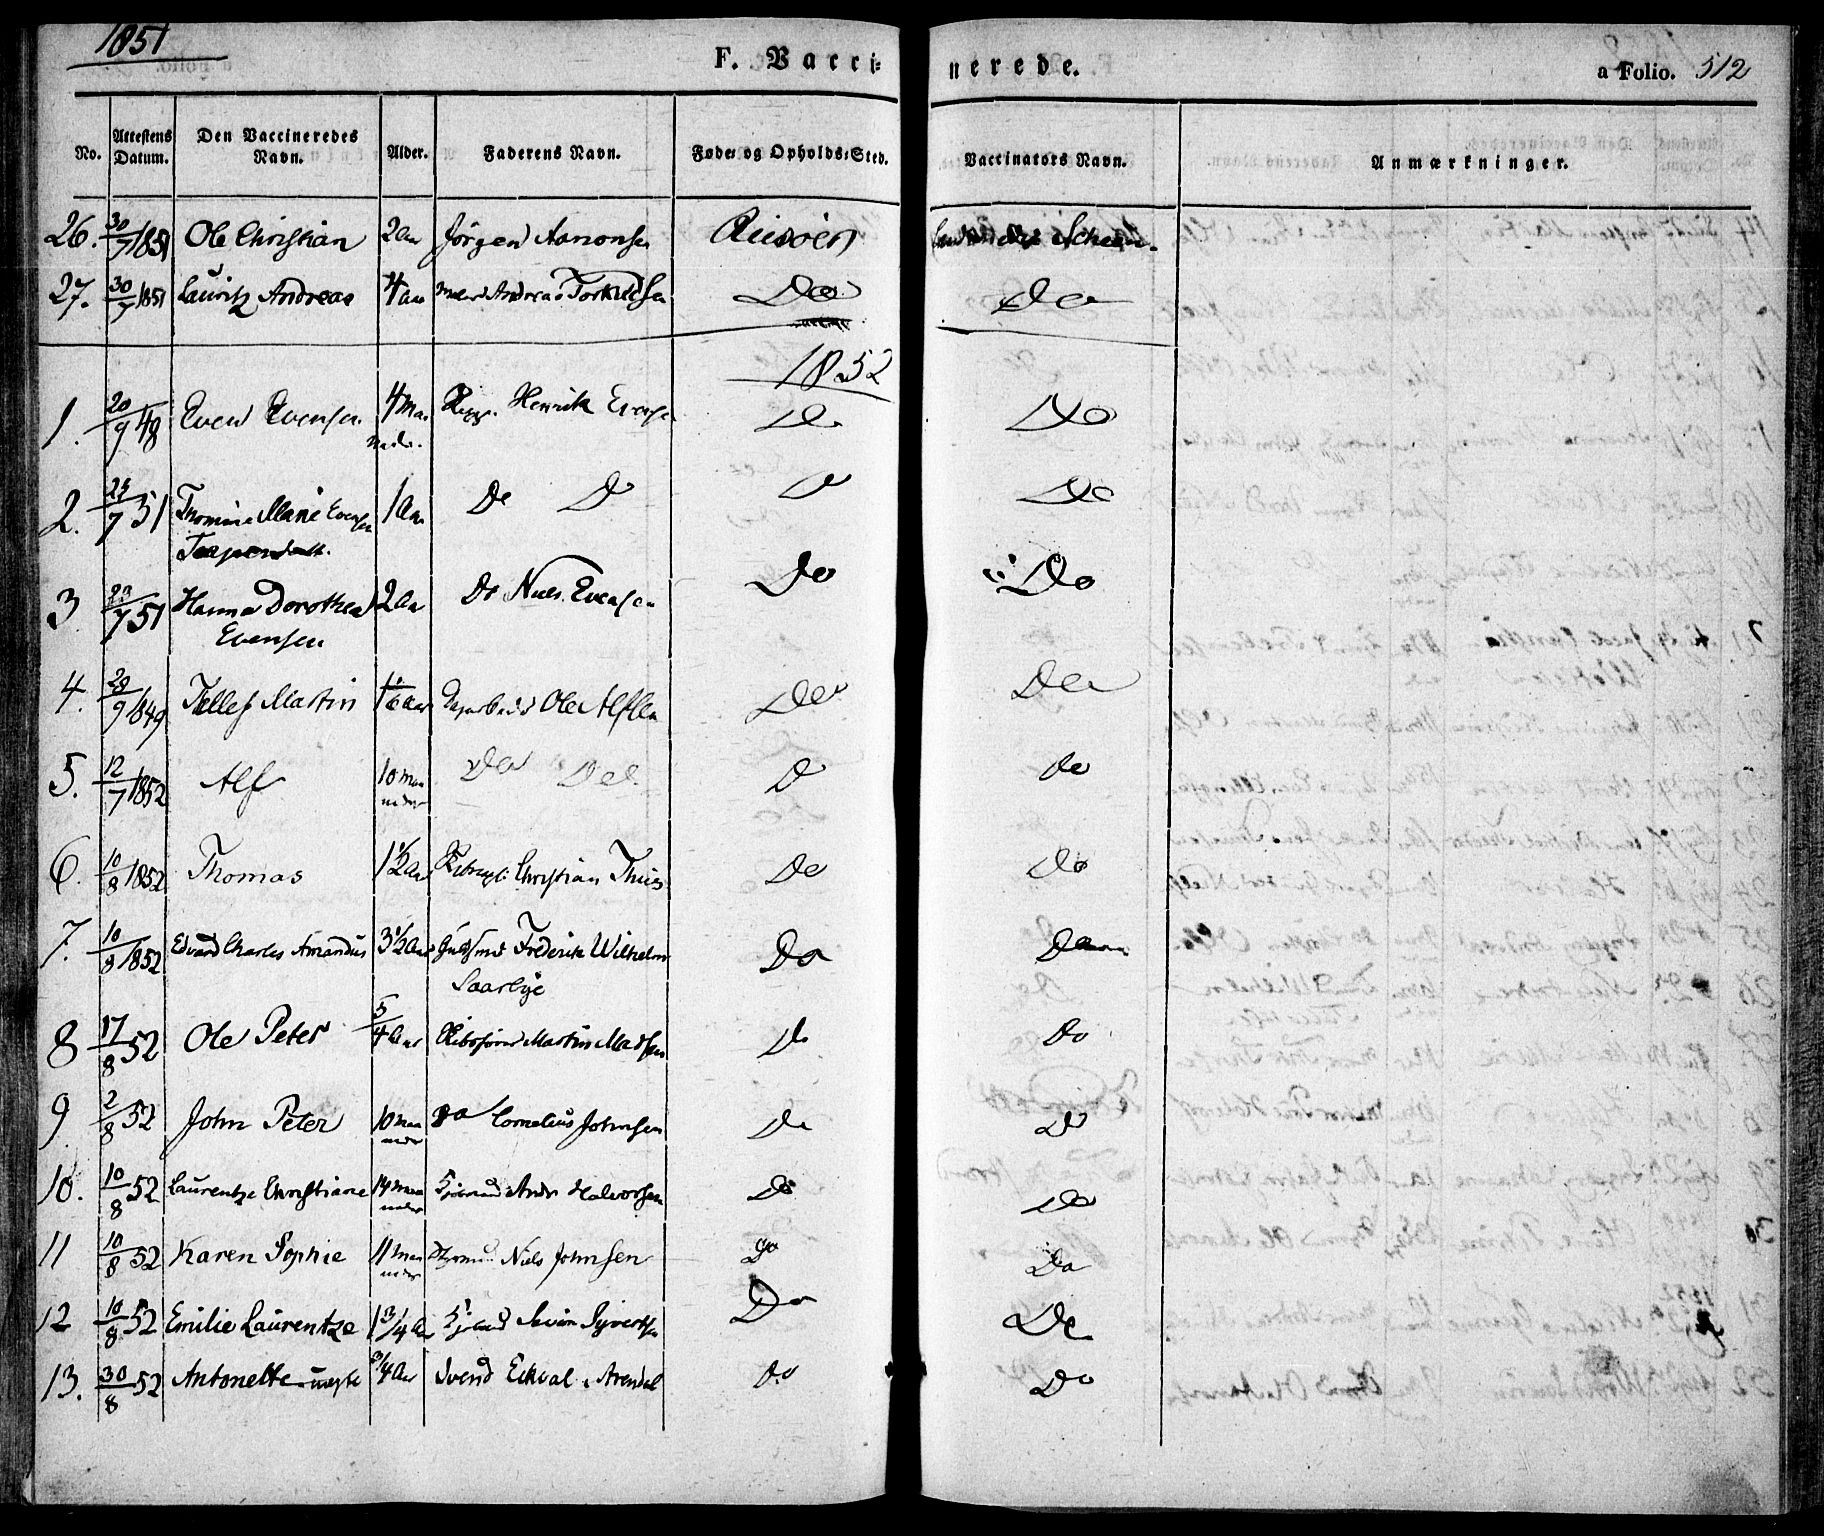 1851
F. Vacci= nerede. a Folio. 512
No. Attestens Datum. Den Vaccineredes Navn. Alder. Faderens Navn. Føde= og Opholds=Sted. Vaccinators Navn. Anmærkninger.
26. 30/7 1851 Ole Christian 2 Aar Jörgen Aanonsen Riisöer
27. 30/7 1851 Lauritz Andreas 4 Aar Andreas Do Do
1852
1. 20/9 48 Even Evensen 4 Maa neder. Henrik Evensen Do Do
2. 7 51 Thomine Marie Evensen 1 Aar Do Do Do Do
3 23/7 51 Hanna Dorothea 2 Aar Do Niels Evensen Do Do
Evensen
4. 20/9 1849 Tellef Martin Aar Ole Alfsen Do Do
5. 12/7 1852 Alf 10 Maa neder Do Do Do Do
6. 10/8 1852 Thomas 1 1/2 Aar Christian Do Do
7. 10/8 1852 Edvard Charles Amandus 3 1/2 Aar Guldsmed Frederik Wilhelm Do Do
Saarbye
8 17/8 52 Ole Peter 5/4 Aar Martin Madsen Do Do
9 2/8 52 John Peter 10 Maa neder Do Cornelius Johnsen Do Do
10. 10/8 52 Laurentze Christiane 14 Maa neder Halvorsen Do Do
11 10/8 52 Karen Sophie 11 Maa neder Niels Johnsen Do Do
12 10/8 52 Emilie Laurentze 1 3/4 Aar Syvertsen Do Do
13. 30/8 52 Antonette uægte 3/4 Aar Svend Eckval Arendal Do Do